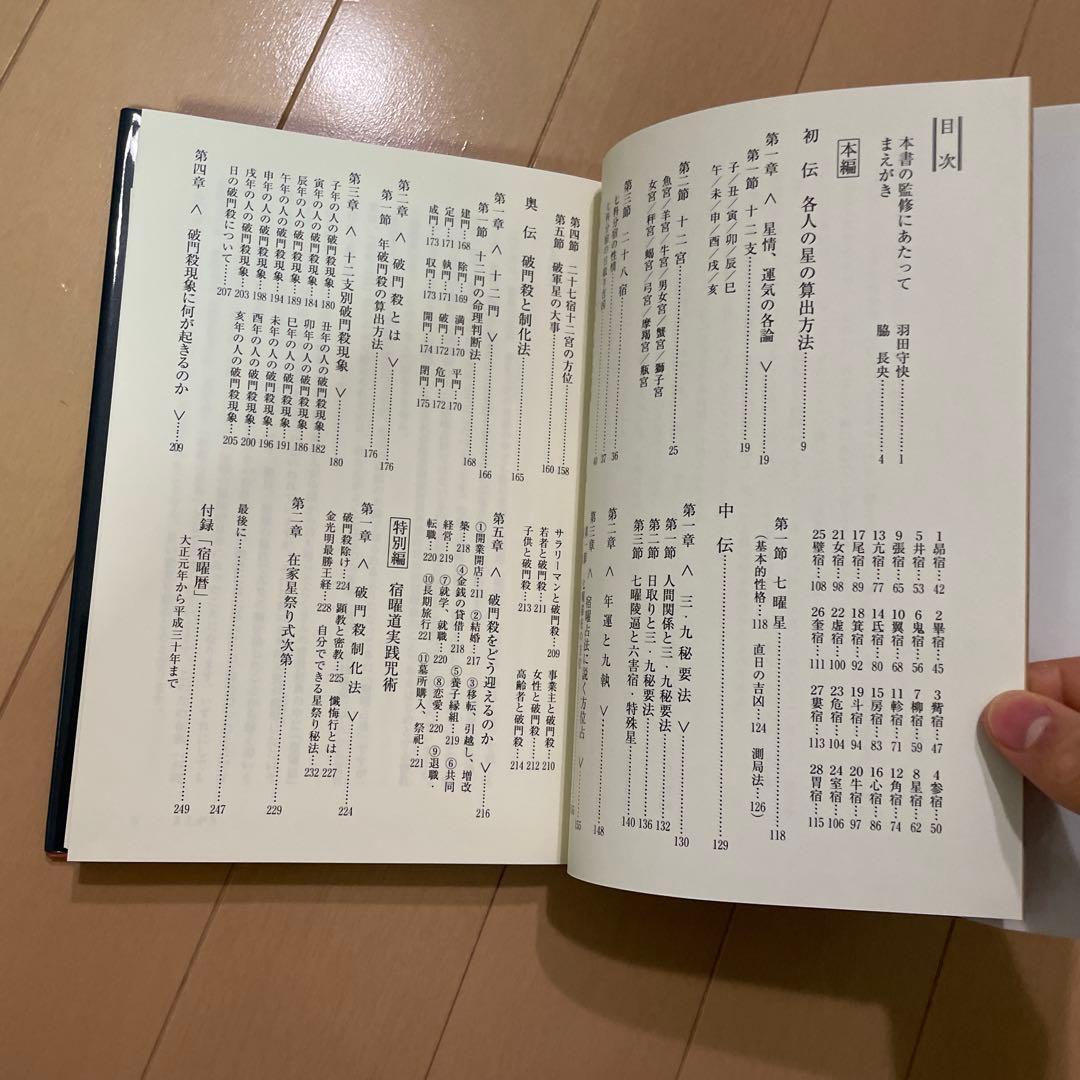 目次
本書の監修にあたって 羽田守快………1
まえがき 脇 長央………4
本編
初伝 各人の星の算出方法………9
第一章 〈 星情、運気の各論 〉………19
第一節 十二支………19
子／丑／寅／卯／辰／巳
午／未／申／酉／戌／亥
第二節 十二宮………25
魚宮／羊宮／牛宮／男女宮／蟹宮／獅子宮
女宮／秤宮／蝎宮／弓宮／摩羯宮／瓶宮
第三節 二十八宿………36
七科分宿の性情………37
1昴宿…42 2畢宿…45 3觜宿…47 4参宿…50
5井宿…53 6鬼宿…56 7柳宿…59 8星宿…62
9張宿…65 10翼宿…68 11軫宿…71 12角宿…74
13亢宿…77 14氐宿…80 15房宿…83 16心宿…86
17尾宿…89 18箕宿…92 19斗宿…94 20牛宿…97
21女宿…98 22虚宿…100 23危宿…104 24室宿…106
25壁宿…108 26奎宿…111 27婁宿…113 28胃宿…115
第一節 七曜星………118
（基本的性格…118 直日の吉凶…124 測局法…126）
中伝………129
第一章 〈 三・九秘要法 〉………130
第一節 人間関係と三・九秘要法………132
第二節 日取りと三・九秘要法………136
第三節 七曜陵逼と六害宿・特殊星………140
第二章 〈 年運と九執 〉………148
第三章 〈 宿曜占法に説く方位占 〉………155
第四節 二十七宿十二宮の方位………158
第五節 破軍星の大事………160
奥伝 破門殺と制化法………165
第一章 〈 十二門 〉………166
第一節 十二門の命理判断法………168
建門…168 除門…169 満門…170 平門…170
定門…171 執門…171 破門…172 危門…172
成門…173 収門…173 開門…174 閉門…175
第二章 〈 破門殺とは 〉………176
第一節 年破門殺の算出方法………176
第三章 〈 十二支別破門殺現象 〉………180
子年の人の破門殺現象…180 丑年の人の破門殺現象…182
寅年の人の破門殺現象…184 卯年の人の破門殺現象…186
辰年の人の破門殺現象…189 巳年の人の破門殺現象…191
午年の人の破門殺現象…194 未年の人の破門殺現象…196
申年の人の破門殺現象…198 酉年の人の破門殺現象…200
戌年の人の破門殺現象…203 亥年の人の破門殺現象…205
日の破門殺について……207
第四章 〈 破門殺現象に何が起きるのか 〉……209
サラリーマンと破門殺…209 事業主と破門殺…210
若者と破門殺…211 女性と破門殺…212
子供と破門殺…213 高齢者と破門殺…214
第五章 〈 破門殺をどう迎えるのか 〉………216
①開業開店…211 ②結婚…217 ③移転、引越し、増改
築…218 ④金銭の貸借…218 ⑤養子縁組…219 ⑥共同
経営…219 ⑦就学、就職…220 ⑧恋愛…220 ⑨退職・
転職…220 ⑩長期旅行…221 ⑪墓所購入、祭祀…221
特別編 宿曜道実践咒術
第一章 〈 破門殺制化法 〉………224
破門殺除け…224 顕教と密教…225 懺悔行とは…227
金光明最勝王経…228 自分でできる星祭り秘法…232
第二章 在家星祭り式次第………229
最後に………247
付録「宿曜暦」………249
大正元年から平成三十年まで